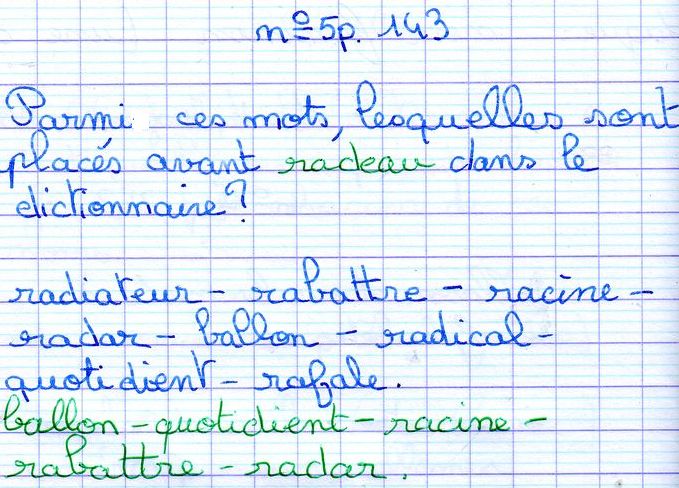 n° 5 p. 143
Parmi ces mots, lesquelles sont
placés avant radeau dans le
dictionnaire?
radiateur - rabattre - racine -
radar - ballon - radical -
quotidient - rafale.
ballon - quotidient - racine -
rabattre - radar.